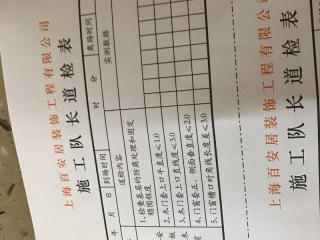 上海百安居装饰工程有限公司
施工队长道检表
年 月 日 到场时间 时 分 离场时间
道检内容 实测数据
1、检查基层的防腐处理和固定
2、木门套上口平直度≤1.0
3、木门套上口直线度≤3.0
4、门窗套正、侧面垂直度≤2.0
5、门窗樘口对角线长度差≤3.0
上海百安居装饰工程有限公司
施工队长道检表